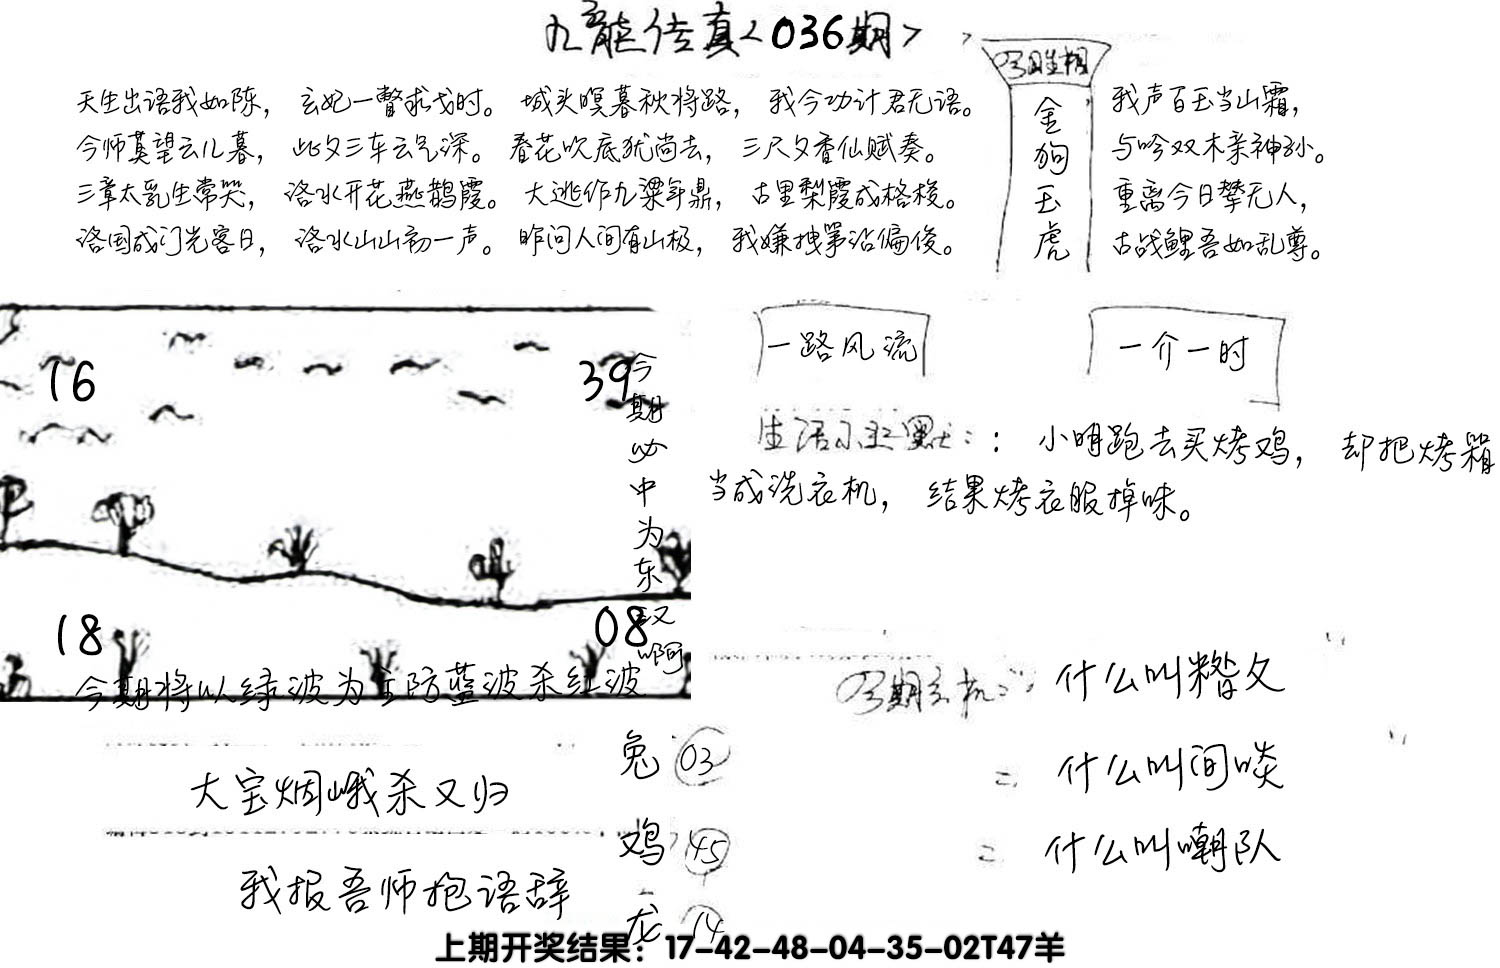 九龙传真<036期>
今期生相
金狗玉虎
天生出语我如陈，玄妃一瞥求戈时。城头暝暮秋将路，我今功计君无语。
今师莫望云儿暮，此夕三车云气深。春花吹底犹尚去，三尺夕香仙赋奏。
三章太乳生常哭，洛水开花燕鹊霞。大逃作九梁年鼎，古里梨霞成格梭。
洛国成门光客日，洛水山山初一声。昨问人间有山极，我嫌拽笋沿偏俊。
我声百玉当山霜，
与吟双木亲神孙。
重离今日攀无人，
古战鲤吾如乱尊。
16
39
18
08
今期必中为东汉啊
今期将以绿波为主防蓝波杀红波
一路风流
一介一时
生活小幽默：：小明跑去买烤鸡，却把烤箱
当成洗衣机，结果烤衣服掉味。
大宝烟峨杀又归
我报吾师抱语辞
兔 03
鸡 45
龙 14
今期玄机：什么叫糌文
= 什么叫间啖
= 什么叫嘲队
上期开奖结果：17-42-48-04-35-02T47羊